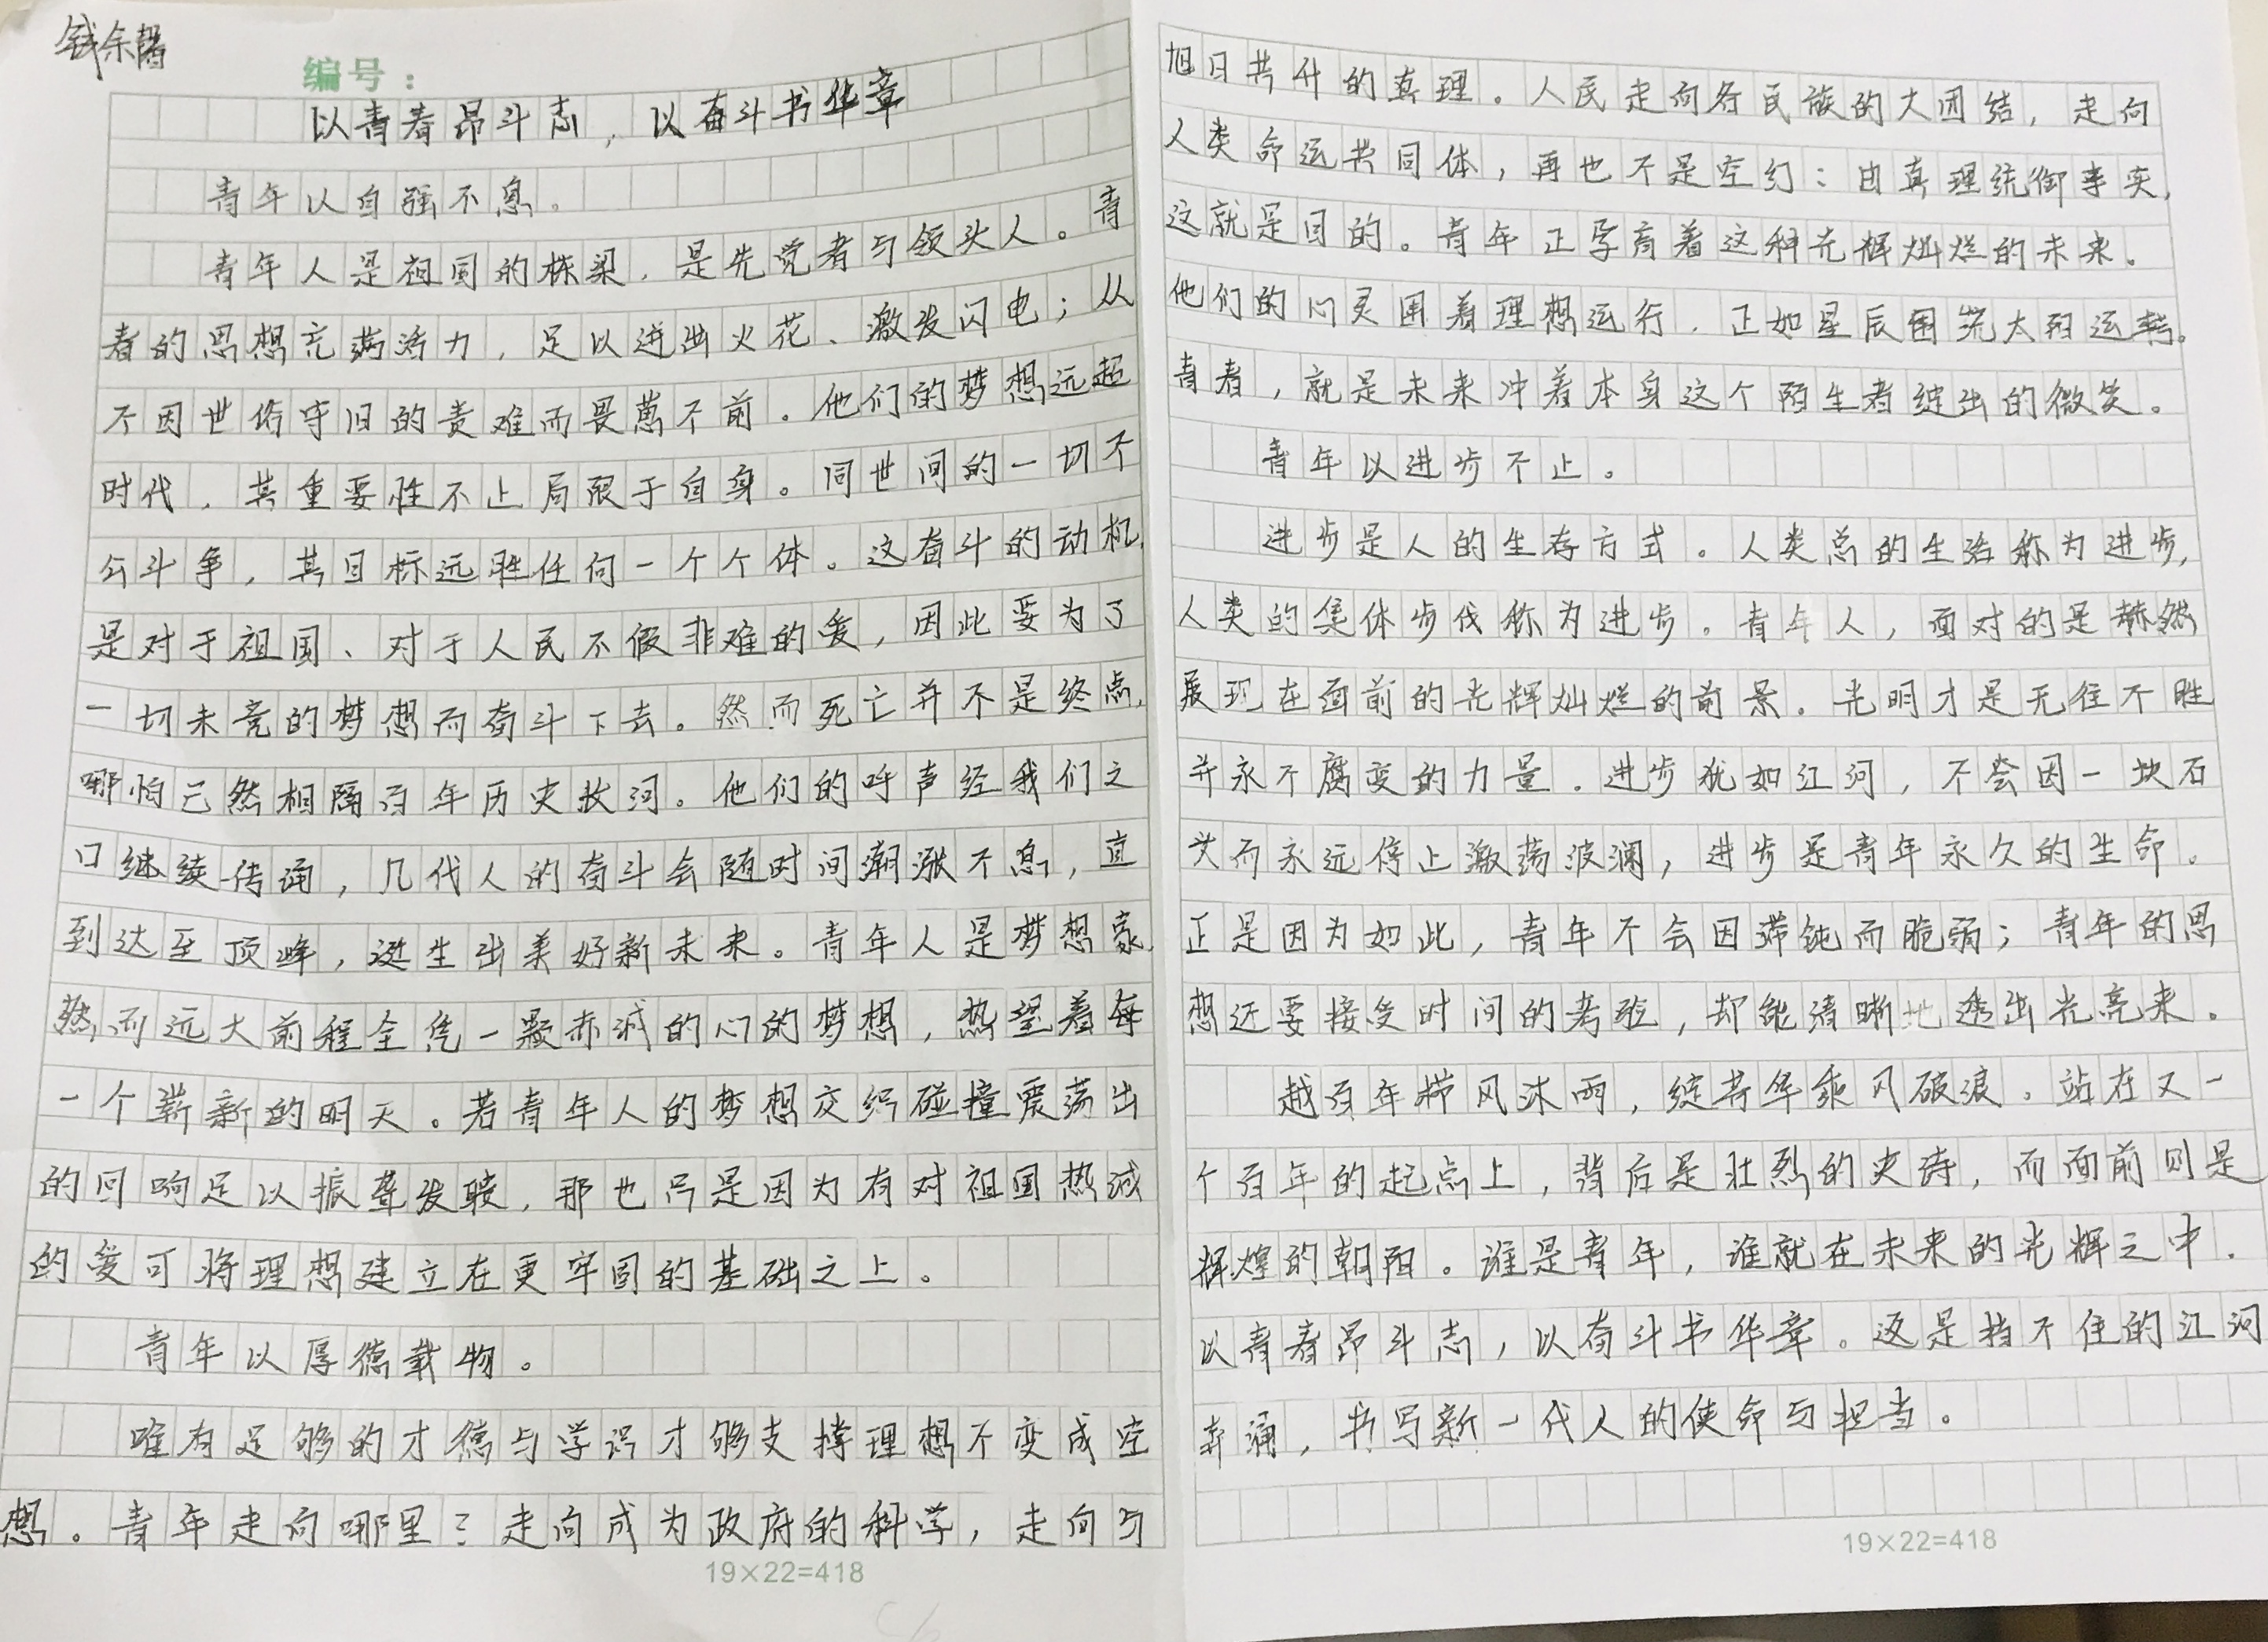 钱余
编号：
以青春昂斗志，以奋斗书华章
青年以自强不息。
青年人是祖国的栋梁，是先觉者与领头人。青
春的思想充满活力，足以迸出火花、激发闪电；从
不因世俗守旧的责难而畏葸不前。他们的梦想远超
时代，其重要性不止局限于自身。同世间的一切不
公斗争，其目标远胜任何一个个体。这奋斗的动机，
是对于祖国、对于人民不假非难的爱，因此要为了
一切未竞的梦想而奋斗下去。然而死亡并不是终点，
哪怕已然相隔百年历史故河。他们的呼声经我们之
口继续传诵，几代人的奋斗会随时间潮涨不息，直
到达至顶峰，诞生出美好新未来。青年人是梦想家，
然而远大前程全凭一颗赤诚的心的梦想，热望着每
一个崭新的明天。若青年人的梦想交织碰撞震荡出
的回响足以振聋发聩，那也只是因为有对祖国热诚
的爱可将理想建立在更牢固的基础之上。
青年以厚德载物。
唯有足够的才德与学识才够支撑理想不变成空
想。青年走向哪里？走向成为政府的科学，走向与
旭日共升的真理。人民走向各民族的大团结，走向
人类命运共同体，再也不是空幻：由真理统御事实，
这就是目的。青年正孕育着这种光辉灿烂的未来。
他们的心灵围着理想运行，正如星辰围绕太阳运转。
青春，就是未来冲着本身这个陌生者绽出的微笑。
青年以进步不止。
进步是人的生存方式。人类总的生活称为进步，
人类的集体步伐称为进步。青年人，面对的是赫然
展现在面前的光辉灿烂的前景。光明才是无往不胜
并永不腐变的力量。进步犹如江河，不会因一块石
头而永远停止激荡波澜，进步是青年永久的生命。
正是因为如此，青年不会因滞钝而脆弱；青年的思
想还要接受时间的考验，却能清晰地透出光亮来。
越百年栉风沐雨，绽芳华乘风破浪。站在又一
个百年的起点上，背后是壮烈的史诗，而面前则是
辉煌的朝阳。谁是青年，谁就在未来的光辉之中。
以青春昂斗志，以奋斗书华章。这是挡不住的江河
奔涌，书写新一代人的使命与担当。
19×22=418
19×22=418